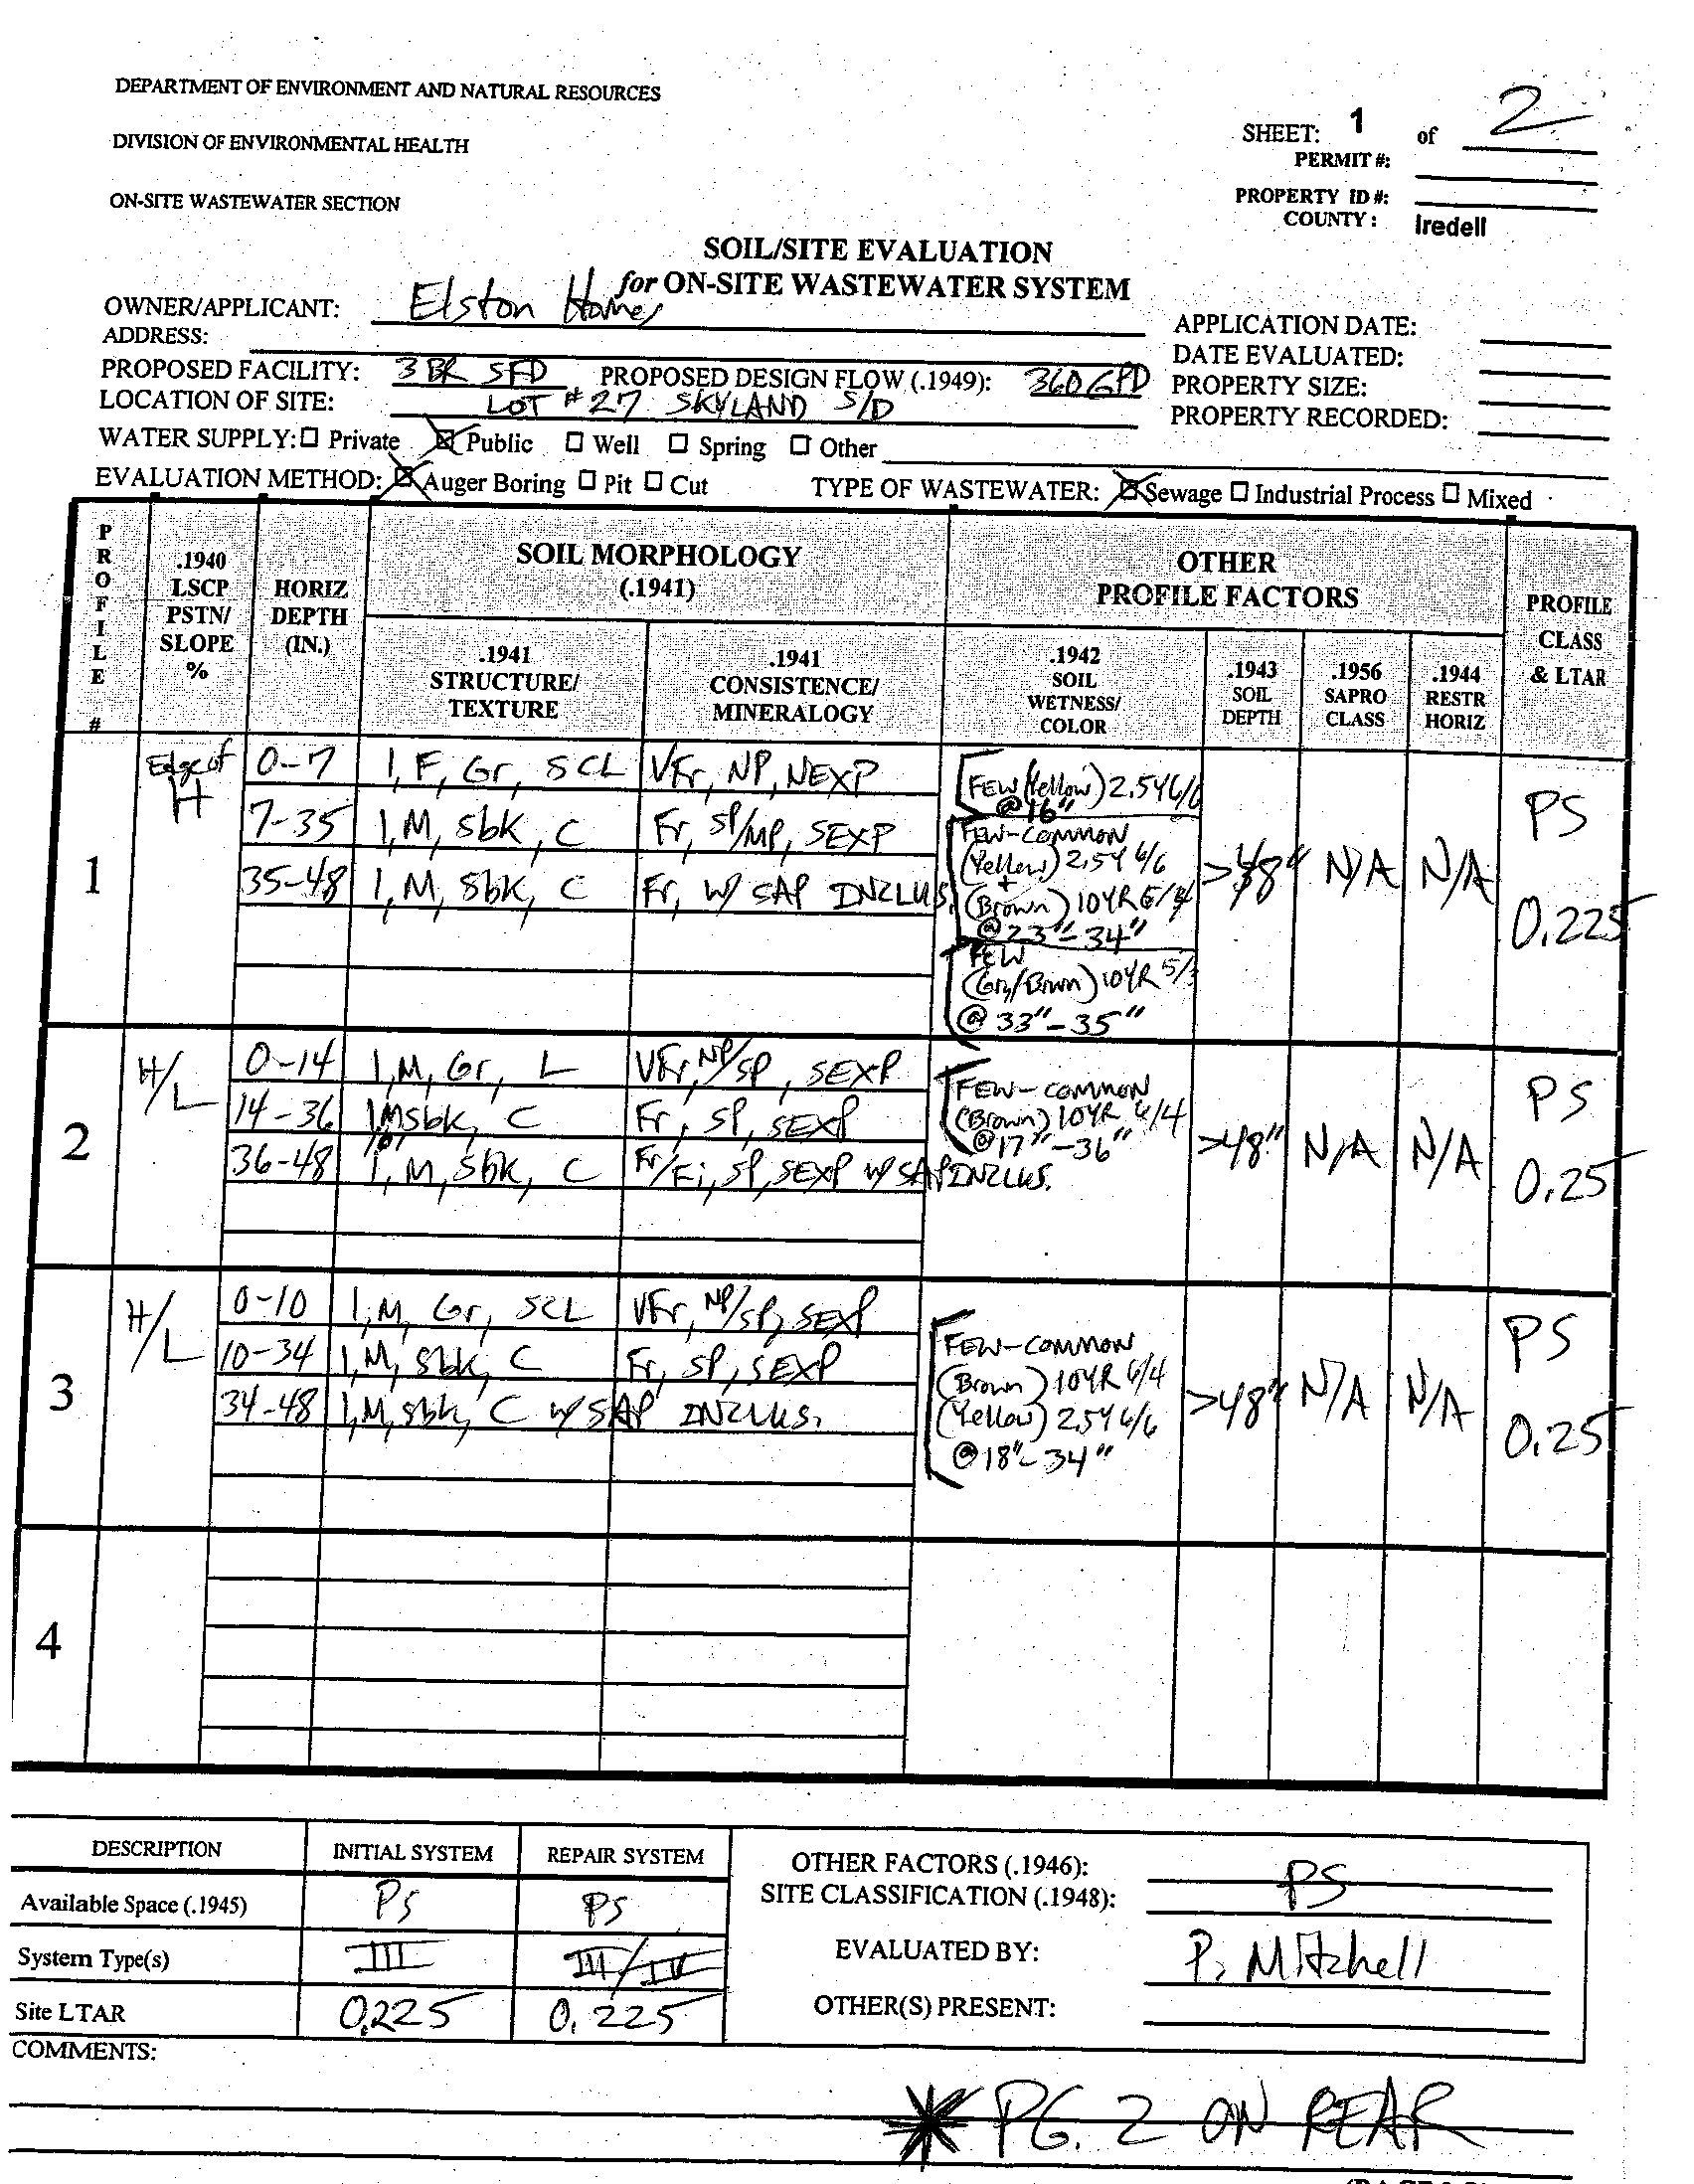 DEPARTMENT OF ENVIRONMENT AND NATURAL RESOURCES
DIVISION OF ENVIRONMENTAL HEALTH
ON-SITE WASTEWATER SECTION
SHEET: 1 of 2
PERMIT #:
PROPERTY ID #:
COUNTY : Iredell
SOIL/SITE EVALUATION
for ON-SITE WASTEWATER SYSTEM
OWNER/APPLICANT: Elston Homes
ADDRESS:
PROPOSED FACILITY: 3 BR SFD PROPOSED DESIGN FLOW (.1949): 360 GPD
LOCATION OF SITE: LOT # 27 SKYLAND S/D
APPLICATION DATE:
DATE EVALUATED:
PROPERTY SIZE:
PROPERTY RECORDED:
WATER SUPPLY: ☐ Private ☒ Public ☐ Well ☐ Spring ☐ Other
EVALUATION METHOD: ☒ Auger Boring ☐ Pit ☐ Cut TYPE OF WASTEWATER: ☒ Sewage ☐ Industrial Process ☐ Mixed
PROFILE #
.1940 LSCP PSTN/ SLOPE %
HORIZ DEPTH (IN.)
SOIL MORPHOLOGY (.1941)
.1941 STRUCTURE/ TEXTURE
.1941 CONSISTENCE/ MINERALOGY
OTHER PROFILE FACTORS
.1942 SOIL WETNESS/ COLOR
.1943 SOIL DEPTH
.1956 SAPRO CLASS
.1944 RESTR HORIZ
PROFILE CLASS & LTAR
1
Edge of H
0-7 1, F, Gr, SCL VFr, NP, NEXP
7-35 1, M, sbk, C Fr, SP/MP, SEXP
35-48 1, M, sbk, C Fr, W/ SAP INCLUS.
FEW (Yellow) 2.5Y 6/6
@ 16"
FEW-COMMON
(Yellow) 2.5Y 6/6
+
(Brown) 10YR
@ 23"-34"
FEW
(Gry/Brown) 10YR 5/3
@ 33"-35"
>48" N/A N/A
PS
0.225
2
H/L
0-14 1, M, Gr, L VFr, NP/SP, SEXP
14-36 1, M, sbk, C Fr, SP, SEXP
36-48 1, M, sbk, C Fr/Fi, SP, SEXP W/ SAP INCLUS.
FEW-COMMON
(Brown) 10YR 6/4
@ 17"-36"
>48" N/A N/A
PS
0.25
3
H/L
0-10 1, M, Gr, SCL VFr, NP/SP, SEXP
10-34 1, M, sbk, C Fr, SP, SEXP
34-48 1, M, sbk, C W/ SAP INCLUS.
FEW-COMMON
(Brown) 10YR 6/4
(Yellow) 2.5Y 6/6
@ 18"-34"
>48" N/A N/A
PS
0.25
4
DESCRIPTION INITIAL SYSTEM REPAIR SYSTEM
Available Space (.1945) PS PS
System Type(s) III III/IV
Site LTAR 0.225 0.225
OTHER FACTORS (.1946):
SITE CLASSIFICATION (.1948): PS
EVALUATED BY: P. Mitchell
OTHER(S) PRESENT:
COMMENTS:
* PG. 2 ON REAR